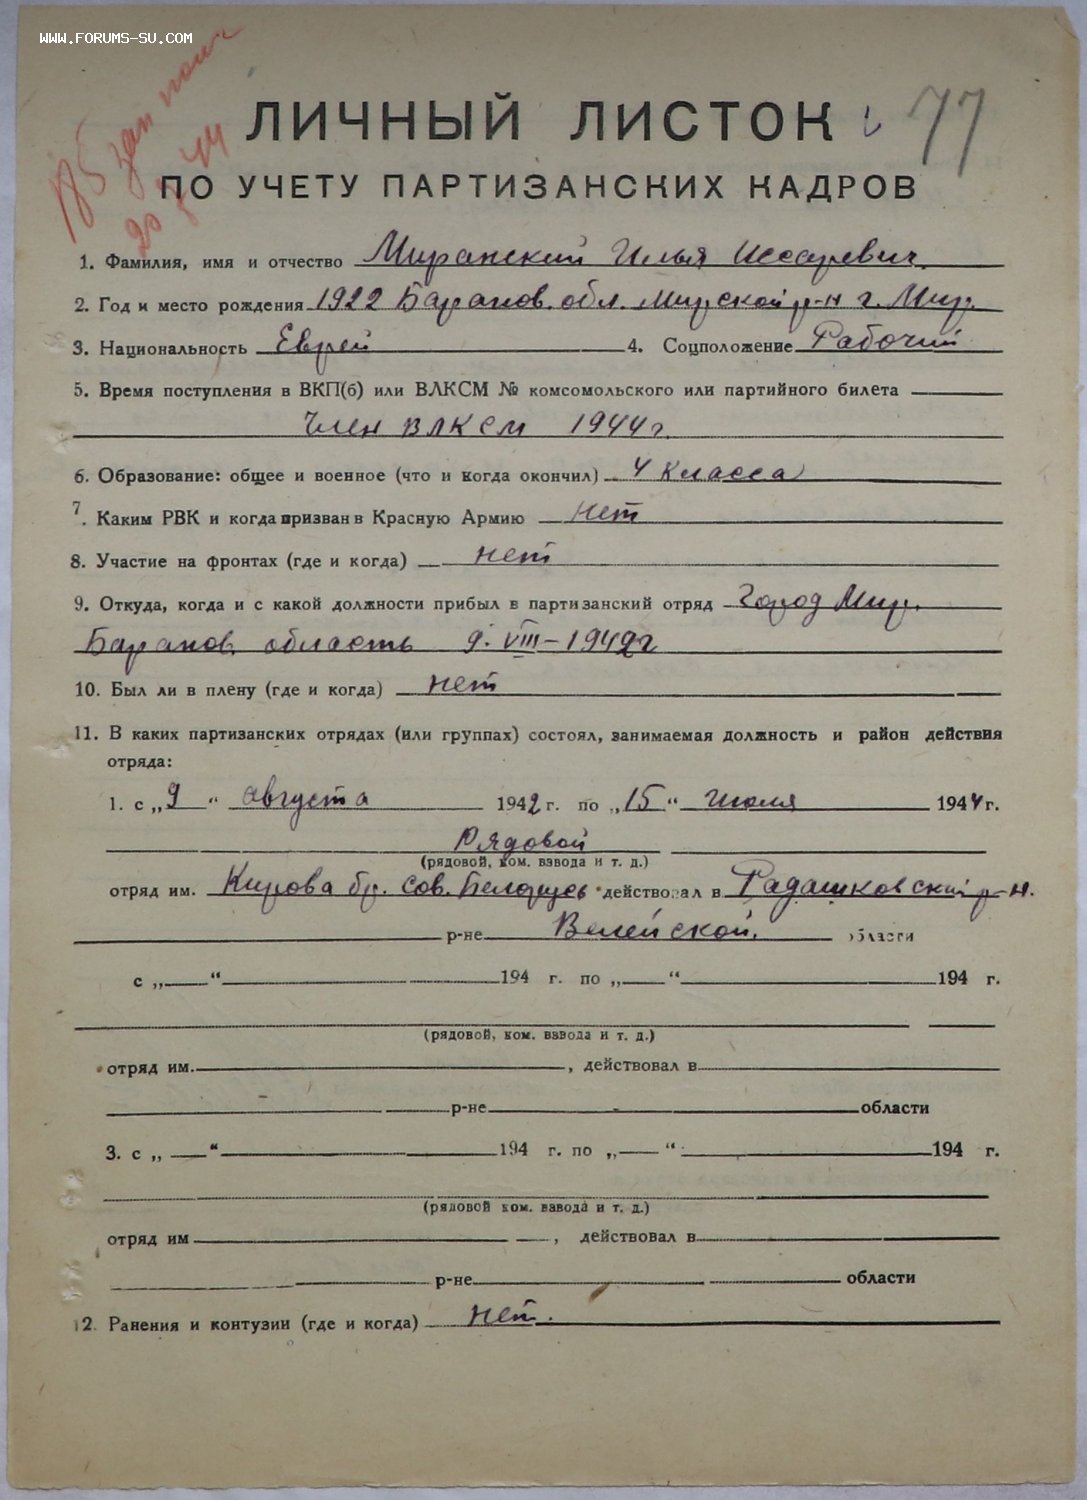 WWW.FORUMS-SU.COM
ЛИЧНЫЙ ЛИСТОК 77
ПО УЧЕТУ ПАРТИЗАНСКИХ КАДРОВ
1. Фамилия, имя и отчество Миранский Илья
2. Год и место рождения 1922 Баранов. обл. Мирской р-н г. Мир.
3. Национальность Еврей 4. Соцположение Рабочий
5. Время поступления в ВКП(б) или ВЛКСМ № комсомольского или партийного билета
Член ВЛКСМ 1944г.
6. Образование: общее и военное (что и когда окончил) 4 класса
7. Каким РВК и когда призван в Красную Армию нет
8. Участие на фронтах (где и когда) нет
9. Откуда, когда и с какой должности прибыл в партизанский отряд Город Мир.
Баранов. область 9. VIII-1942г
10. Был ли в плену (где и когда) нет
11. В каких партизанских отрядах (или группах) состоял, занимаемая должность и район действия
отряда:
1. с „9“ августа 1942 г. по „15“ Июля 1944 г.
Рядовой
(рядовой, ком. взвода и т. д.)
отряд им. Кирова бр. Сов. действовал в Радашковский р-н.
р-не Велейской. области
с „ “ 194 г. по „ “ 194 г.
(рядовой, ком. взвода и т. д.)
отряд им. , действовал в
р-не области
3. с „ “ 194 г. по „ “ 194 г.
(рядовой ком. взвода и т. д.)
отряд им , действовал в
р-не области
12. Ранения и контузии (где и когда) нет.